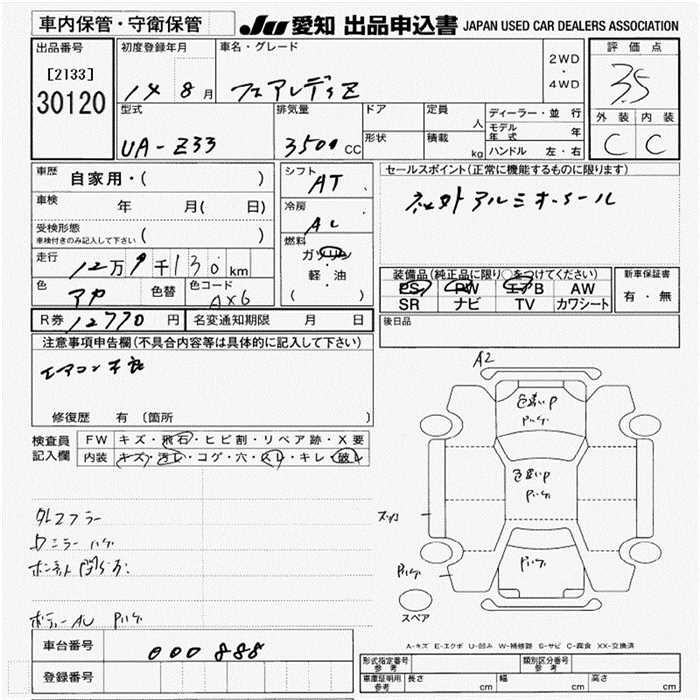 車内保管・守衛保管
JU 愛知 出品申込書 JAPAN USED CAR DEALERS ASSOCIATION
出品番号
[2133]
30120
初度登録年月
14 8月
車名・グレード
フェアレディZ
2WD
・
4WD
評価点
3.5
外装 内装
C C
型式
UA-Z33
排気量
3500 CC
ドア
形状
定員 人
積載 kg
ディーラー・並行
モデル年式 年
ハンドル 左・右
車歴 自家用・( )
車検 年 月( 日)
受検形態
車検付きのみ記入して下さい ( )
走行 12万9千130km
色 アカ
色替
色コード AX6
シフト AT
冷房 AC
燃料
ガソリン
軽・油
( )
セールスポイント(正常に機能するものに限ります)
社外アルミホイール
装備品(純正品に限り○をつけてください)
PS PW エアB AW
SR ナビ TV カワシート
新車保証書
有・無
後日品
R券 12770 円
名変通知期限 月 日
注意事項申告欄(不具合内容等は具体的に記入して下さい)
エアコン不良
修復歴 有 〔箇所 〕
検査員記入欄
FW キズ・飛石・ヒビ割・リペア跡・X要
内装 キズ・汚レ・コゲ・穴・スレ・キレ・破レ
社マフラー
ドアミラー ハゲ
ボディーAU Pハゲ
A2
色違いP
Pハゲ
色違いP
Pハゲ
Pハゲ
Pハゲ
スペア
A-キズ E-エクボ U-凹み W-補修跡 S-サビ C-腐食 XX-交換済
車台番号 000888
登録番号
形式指定番号 参考
類別区分番号 参考
車庫証明用 参考
長さ cm
幅 cm
高さ cm